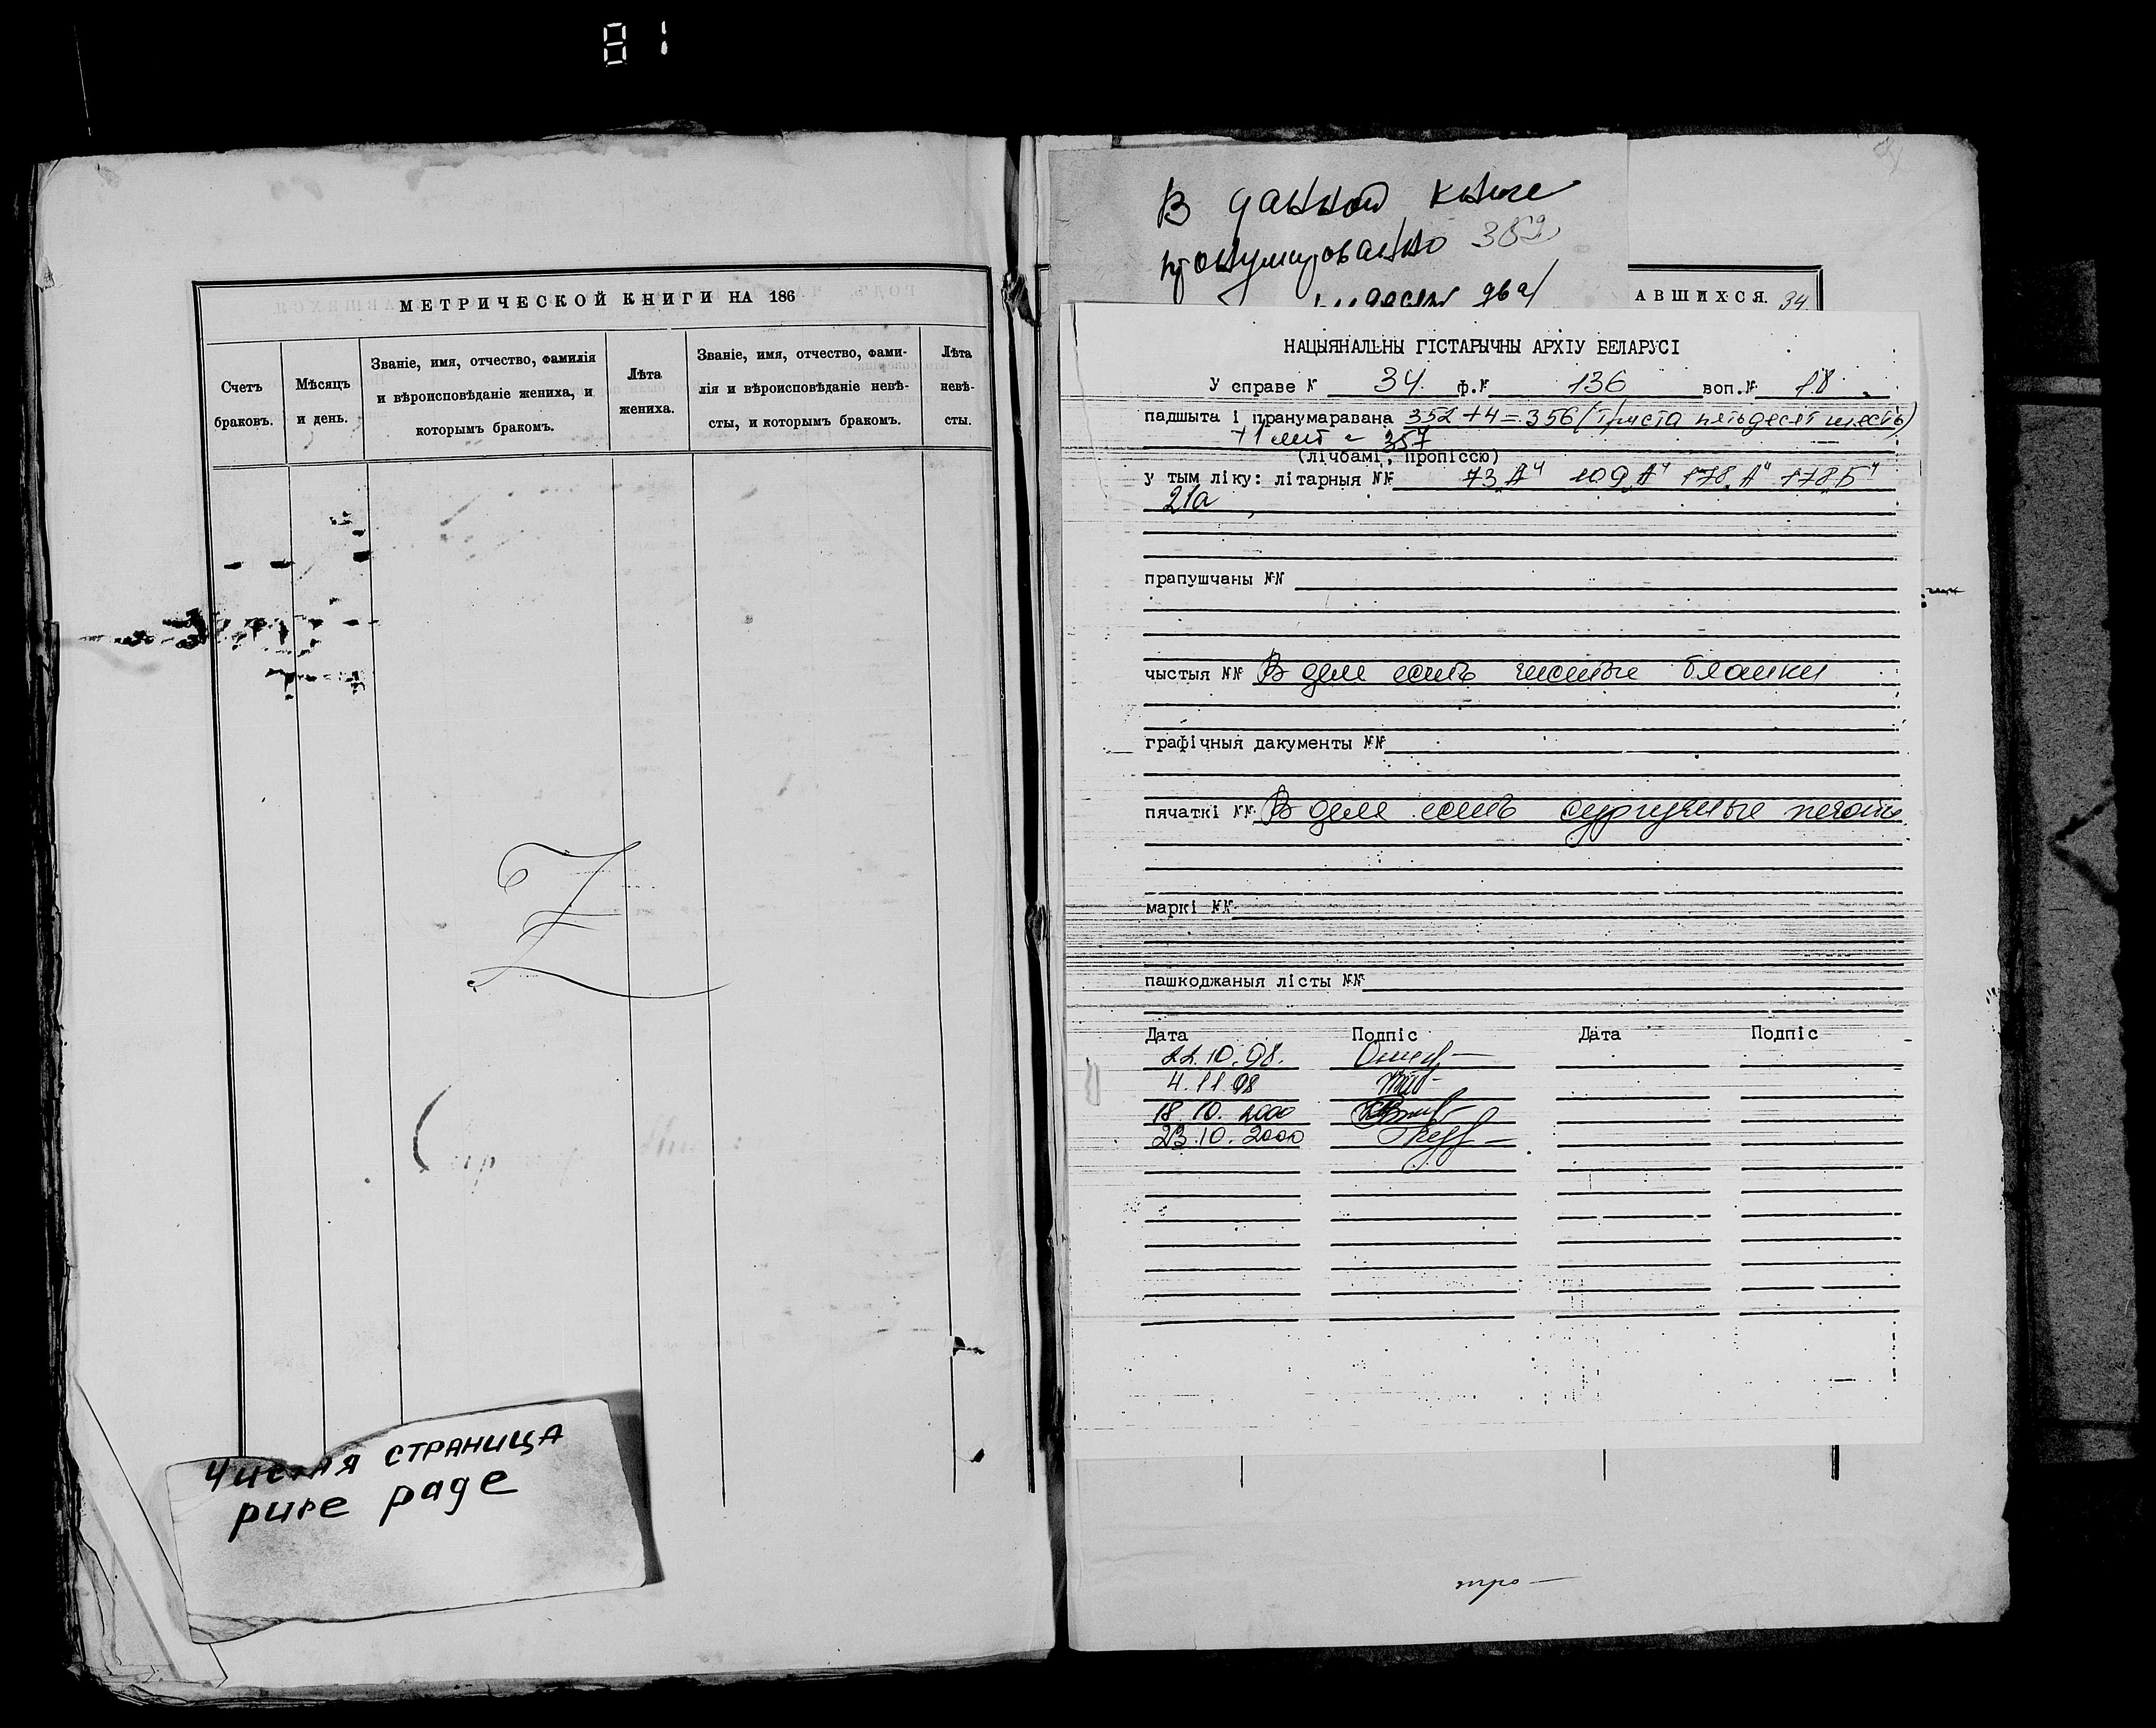 81
МЕТРИЧЕСКОЙ КНИГИ НА 186
Счетъ браковъ.
Мѣсяцъ и день.
Званіе, имя, отчество, фамилія и вѣроисповѣданіе жениха, и которымъ бракомъ.
Лѣта жениха.
Званіе, имя, отчество, фамилія и вѣроисповѣданіе невѣсты, и которымъ бракомъ.
Лѣта невѣсты.
Чистая страница
pure page
В данной книге
пронумеровано 352
два/
АВШИХСЯ. 34
НАЦЫЯНАЛЬНЫ ГІСТАРЫЧНЫ АРХІУ БЕЛАРУСІ
У справе № 34 ф.№ 136 воп.№ 18
падшыта і пранумаравана 352+4=356 (триста пятьдесят шесть)
+1 лит = 357
(лічбамі, пропіссю)
у тым ліку: літарныя №№ 73„А" 109„А" 178„А" 178„Б"
21а
прапушчаны №№
чыстыя №№ В деле есть чистые бланки
графічныя дакументы №№
пячаткі №№ В деле есть сургучные печати
маркі №№
пашкоджаныя лісты №№
Дата Подпіс Дата Подпіс
22.10.98.
4.11.98
18.10.2000
23.10.2000